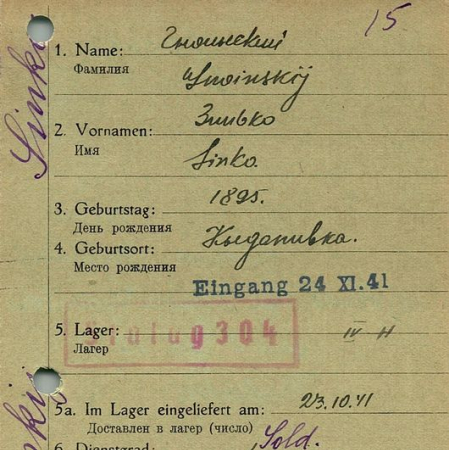 15
1. Name: Гноинский
Фамилия
Gnoinskij
2. Vornamen: Зинько
Имя
Sinko.
3. Geburtstag: 1895.
День рождения
4. Geburtsort:
Место рождения
Eingang 24 XI. 41
5. Lager: Stalag 304 IV H
Лагер
5a. Im Lager eingeliefert am: 23.10.41
Доставлен в лагер (число)
6. Dienstgrad: Sold.
Sinko